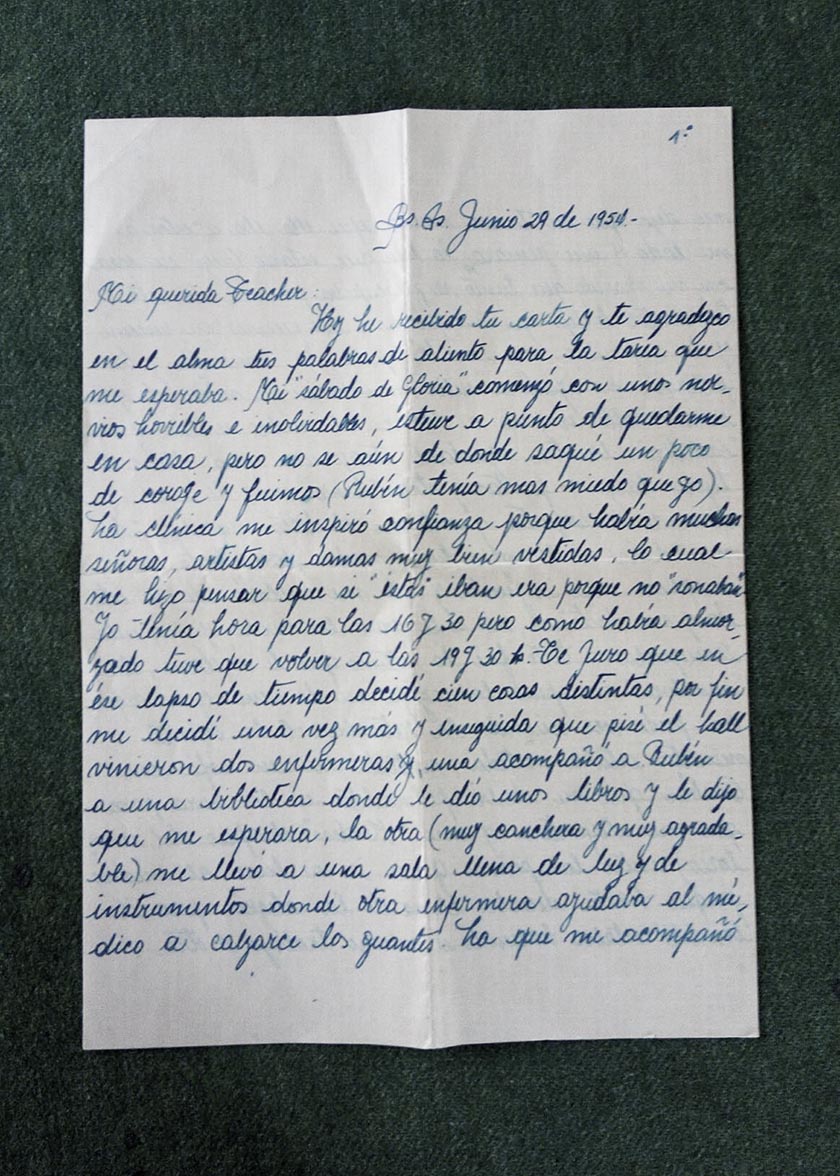 1º
Bs As Junio 29 de 1954.-
Mi querida Teacher:
Hoy he recibido tu carta y te agradezco
en el alma tus palabras de aliento para la tarea que
me esperaba. Mi "sábado de Gloria" comenzó con unos ner-
vios horribles e inolvidables, estuve a punto de quedarme
en casa, pero no se aún de donde saqué un poco
de corage y fuimos (Rubén tenía mas miedo que yo).
La clínica me inspiró confianza porque había muchas
señoras, artistas y damas muy bien vestidas, lo cual
me hizo pensar que si "éstas" iban era porque no "sonaban"
Yo tenía hora para las 16 y 30 pero como había almor-
zado tuve que volver a las 19 y 30 h. Te juro que en
ése lapso de tiempo decidí cien cosas distintas, por fin
me decidí una vez más y enseguida que pisé el hall
vinieron dos enfermeras, una acompañó a Rubén
a una biblioteca donde le dió unos libros y le dijo
que me esperara, la otra (muy canchera y muy agrada-
ble) me llevó a una sala llena de luz y de
instrumentos donde otra enfermera ayudaba al mé-
dico a calzarce los guantes. La que me acompañó